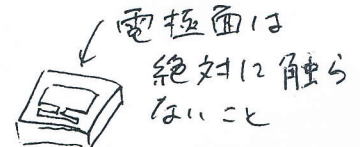 電極面は
絶対に触ら
ないこと